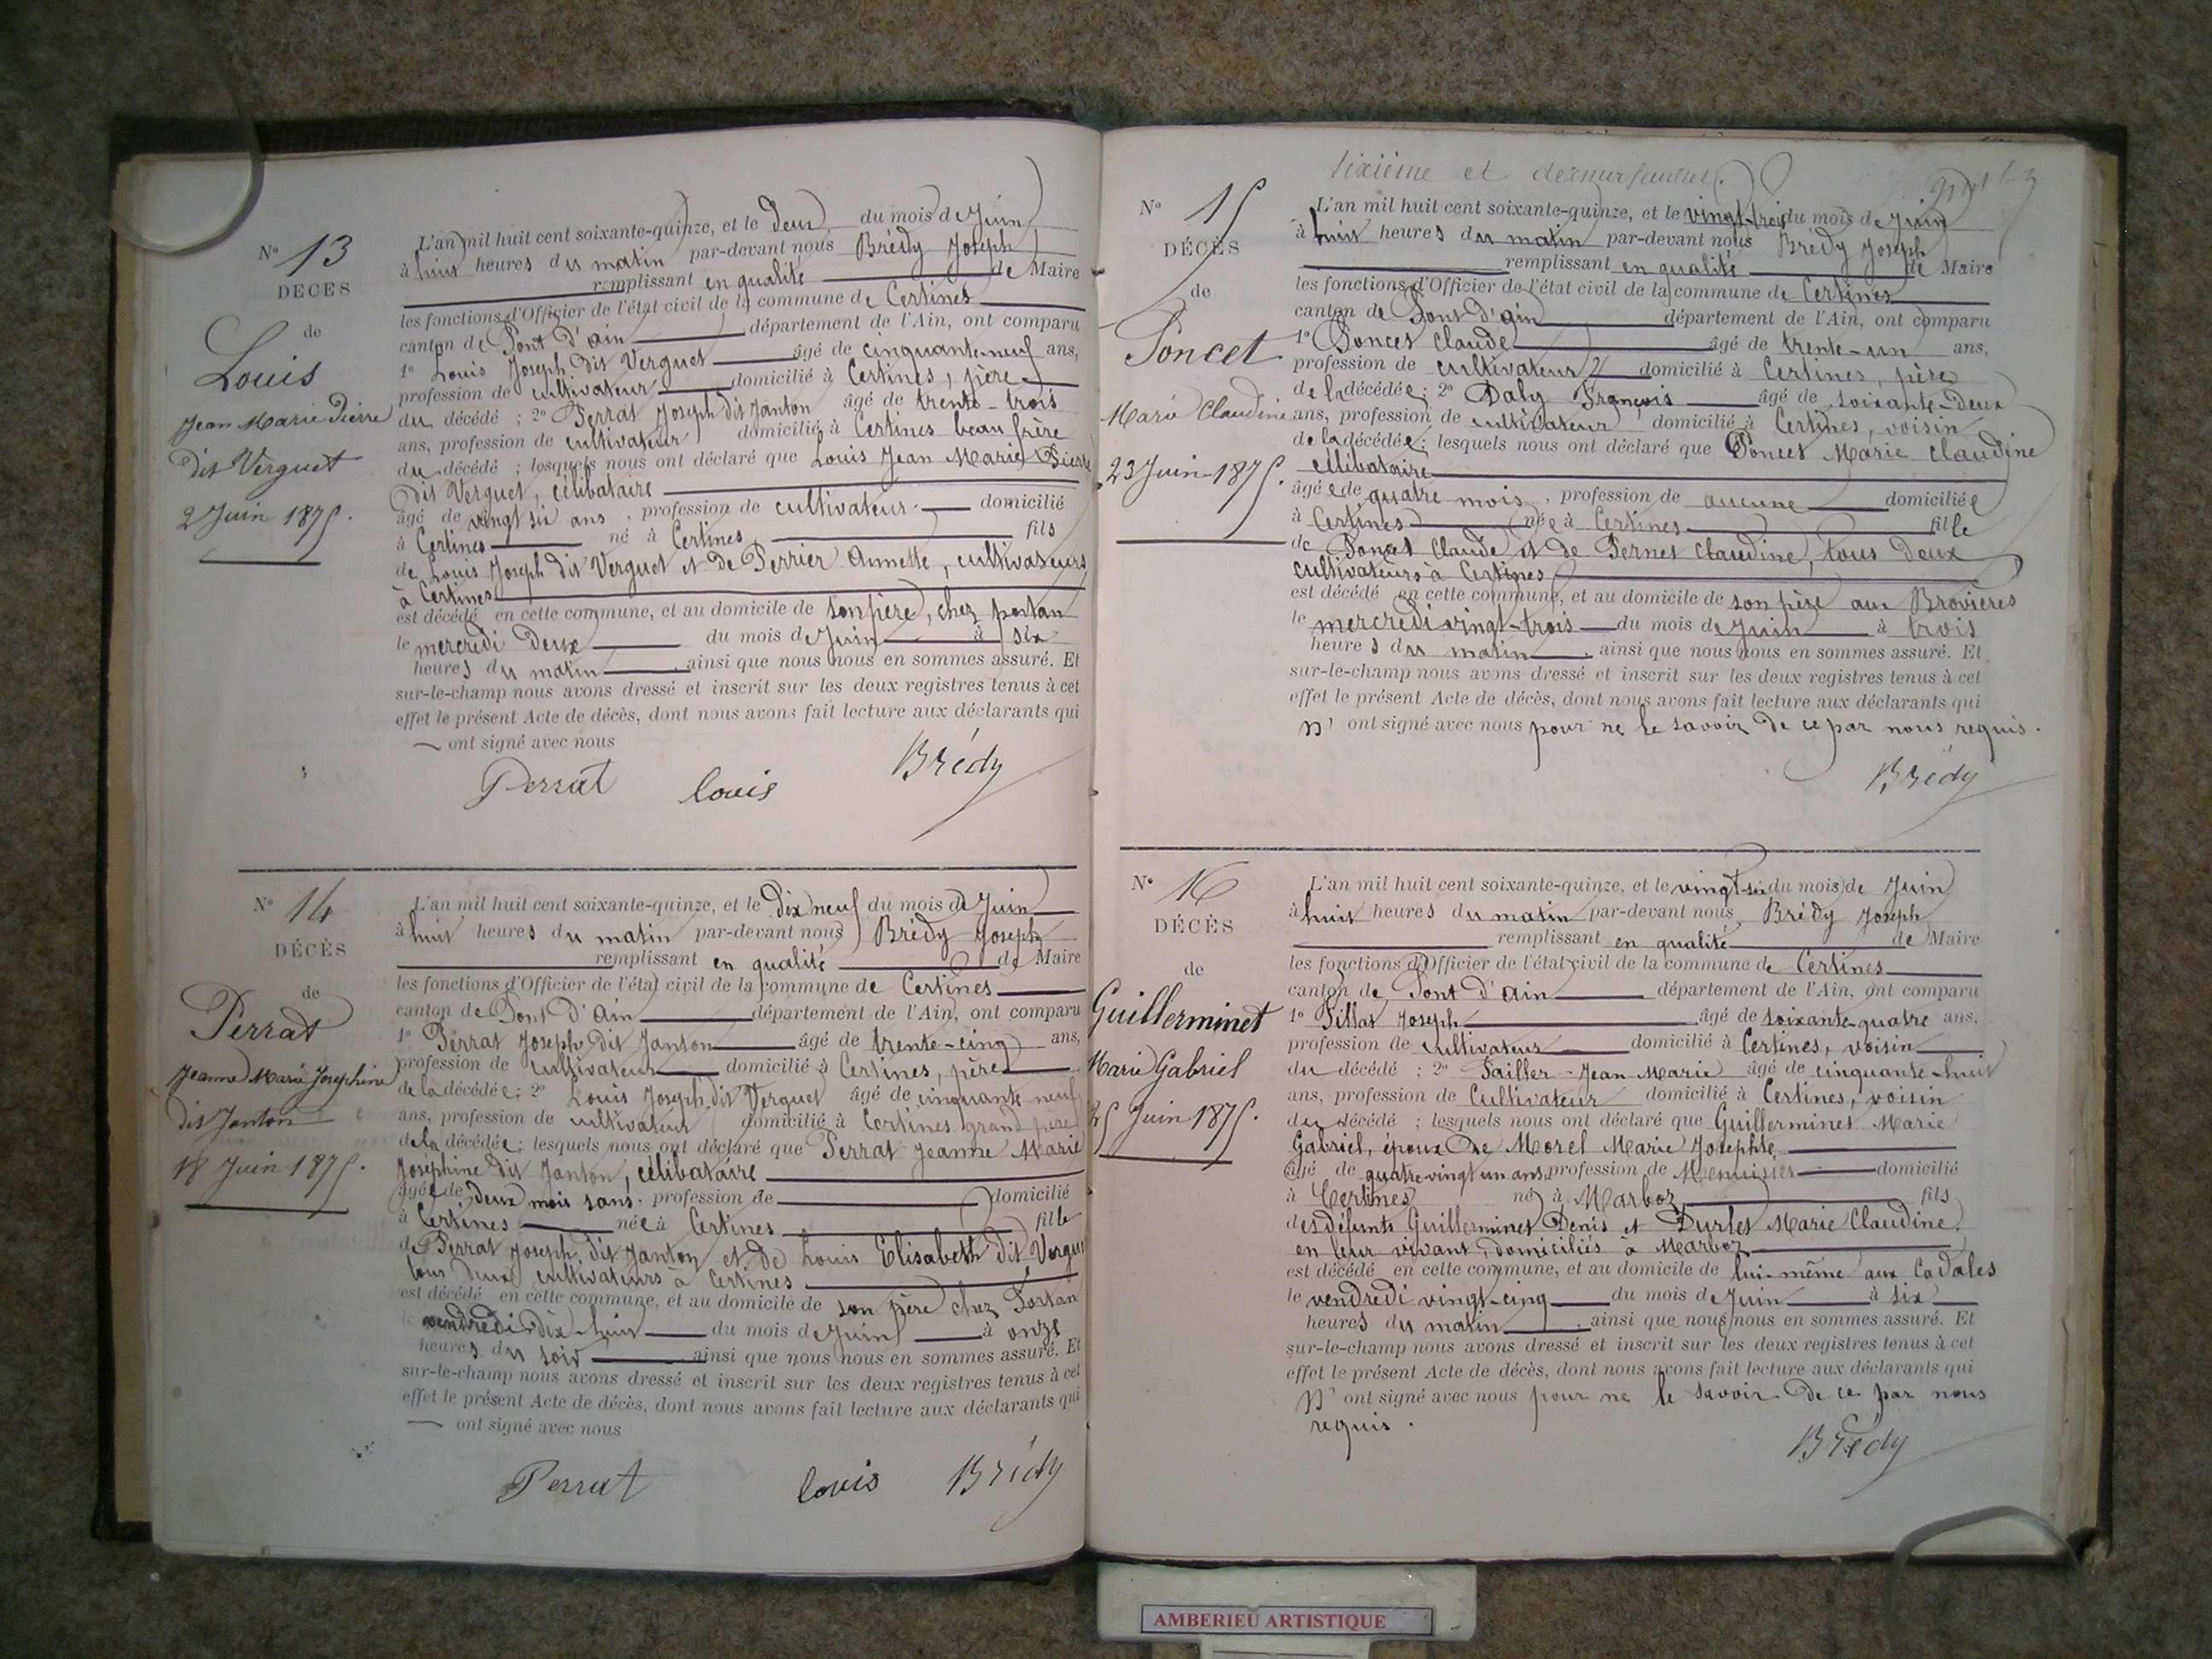 N° 13
DÉCÈS
de
Louis
Jean Marie Pierre
dit Verguet
2 Juin 1875.
L'an mil huit cent soixante-quinze, et le deux du mois de Juin
à huit heures du matin par-devant nous Brédy Joseph
remplissant en qualité de Maire
les fonctions d'Officier de l'état civil de la commune de Certines
canton de Pont d'ain département de l'Ain, ont comparu
1° Louis Joseph dit Verguet âgé de cinquante-neuf ans,
profession de cultivateur domicilié à Certines, père
du décédé ; 2° Perrat Joseph dit Janton âgé de trente-trois
ans, profession de cultivateur domicilié à Certines beau frère
du décédé ; lesquels nous ont déclaré que Louis Jean Marie Pierre
dit Verguet, célibataire
âgé de vingt six ans, profession de cultivateur domicilié
à Certines né à Certines fils
de Louis Joseph dit Verguet et de Perrier Annette, cultivateurs
à Certines
est décédé en cette commune, et au domicile de son père, chez portan
le mercredi deux du mois de Juin à six
heures du matin ainsi que nous nous en sommes assuré. Et
sur-le-champ nous avons dressé et inscrit sur les deux registres tenus à cet
effet le présent Acte de décès, dont nous avons fait lecture aux déclarants qui
ont signé avec nous
Perrat Louis Brédy
N° 14
DÉCÈS
de
Perrat
Jeanne Marie Josephine
dit Janton
18 Juin 1875.
L'an mil huit cent soixante-quinze, et le dix neuf du mois de Juin
à huit heures du matin par-devant nous Brédy Joseph
remplissant en qualité de Maire
les fonctions d'Officier de l'état civil de la commune de Certines
canton de Pont d'Ain département de l'Ain, ont comparu
1° Perrat Joseph dit Janton âgé de trente-cinq ans,
profession de cultivateur domicilié à Certines, père
de la décédée ; 2° Louis Joseph dit Verguet âgé de cinquante neuf
ans, profession de cultivateur domicilié à Certines grand père
de la décédée ; lesquels nous ont déclaré que Perrat Jeanne Marie
Joséphine dit Janton, célibataire
âgée de deux mois sans profession de domicilié
à Certines née à Certines fille
de Perrat Joseph dit Janton et de Louis Elisabeth dit Verguet
tous deux cultivateurs à Certines
est décédé en cette commune, et au domicile de son père chez Portan
le vendredi dix-huit du mois de Juin à onze
heures du soir ainsi que nous nous en sommes assuré. Et
sur-le-champ nous avons dressé et inscrit sur les deux registres tenus à cet
effet le présent Acte de décès, dont nous avons fait lecture aux déclarants qui
ont signé avec nous
Perrat Louis Brédy
Sixième et dernier feuillet.
N° 15
DÉCÈS
de
Poncet
Marie Claudine
23 Juin 1875.
L'an mil huit cent soixante-quinze, et le vingt-trois du mois de Juin
à huit heures du matin par-devant nous Brédy Joseph
remplissant en qualité de Maire
les fonctions d'Officier de l'état civil de la commune de Certines
canton de Pont d'ain département de l'Ain, ont comparu
1° Poncet Claude âgé de trente-un ans,
profession de cultivateur domicilié à Certines, père
de la décédée ; 2° Daly François âgé de soixante-deux
ans, profession de cultivateur domicilié à Certines, voisin
de la décédée ; lesquels nous ont déclaré que Poncet Marie Claudine
célibataire
âgée de quatre mois, profession de aucune domiciliée
à Certines née à Certines fille
de Poncet Claude et de Pernet Claudine, tous deux
cultivateurs à Certines
est décédé en cette commune, et au domicile de son père aux Brovières
le mercredi vingt-trois du mois de Juin à trois
heures du matin ainsi que nous nous en sommes assuré. Et
sur-le-champ nous avons dressé et inscrit sur les deux registres tenus à cet
effet le présent Acte de décès, dont nous avons fait lecture aux déclarants qui
n' ont signé avec nous pour ne le savoir de ce par nous requis.
Brédy
N° 16
DÉCÈS
de
Guillerminet
Marie Gabriel
25 Juin 1875.
L'an mil huit cent soixante-quinze, et le vingt-six du mois de Juin
à huit heures du matin par-devant nous Brédy Joseph
remplissant en qualité de Maire
les fonctions d'Officier de l'état civil de la commune de Certines
canton de Pont d'ain département de l'Ain, ont comparu
1° Pillat Joseph âgé de soixante-quatre ans,
profession de cultivateur domicilié à Certines, voisin
du décédé ; 2° Pailler Jean Marie âgé de cinquante-huit
ans, profession de Cultivateur domicilié à Certines, voisin
du décédé ; lesquels nous ont déclaré que Guillerminet Marie
Gabriel, époux de Morel Marie Josephte
âgé de quatre vingt un ans, profession de Menuisier domicilié
à Certines né à Marboz fils
des défunts Guillerminet Denis et Durlet Marie Claudine
en leur vivant, domiciliés à Marboz
est décédé en cette commune, et au domicile de lui-même aux Cadales
le vendredi vingt-cinq du mois de Juin à six
heures du matin ainsi que nous nous en sommes assuré. Et
sur-le-champ nous avons dressé et inscrit sur les deux registres tenus à cet
effet le présent Acte de décès, dont nous avons fait lecture aux déclarants qui
n' ont signé avec nous pour ne le savoir de ce par nous
requis.
Brédy
AMBERIEU ARTISTIQUE